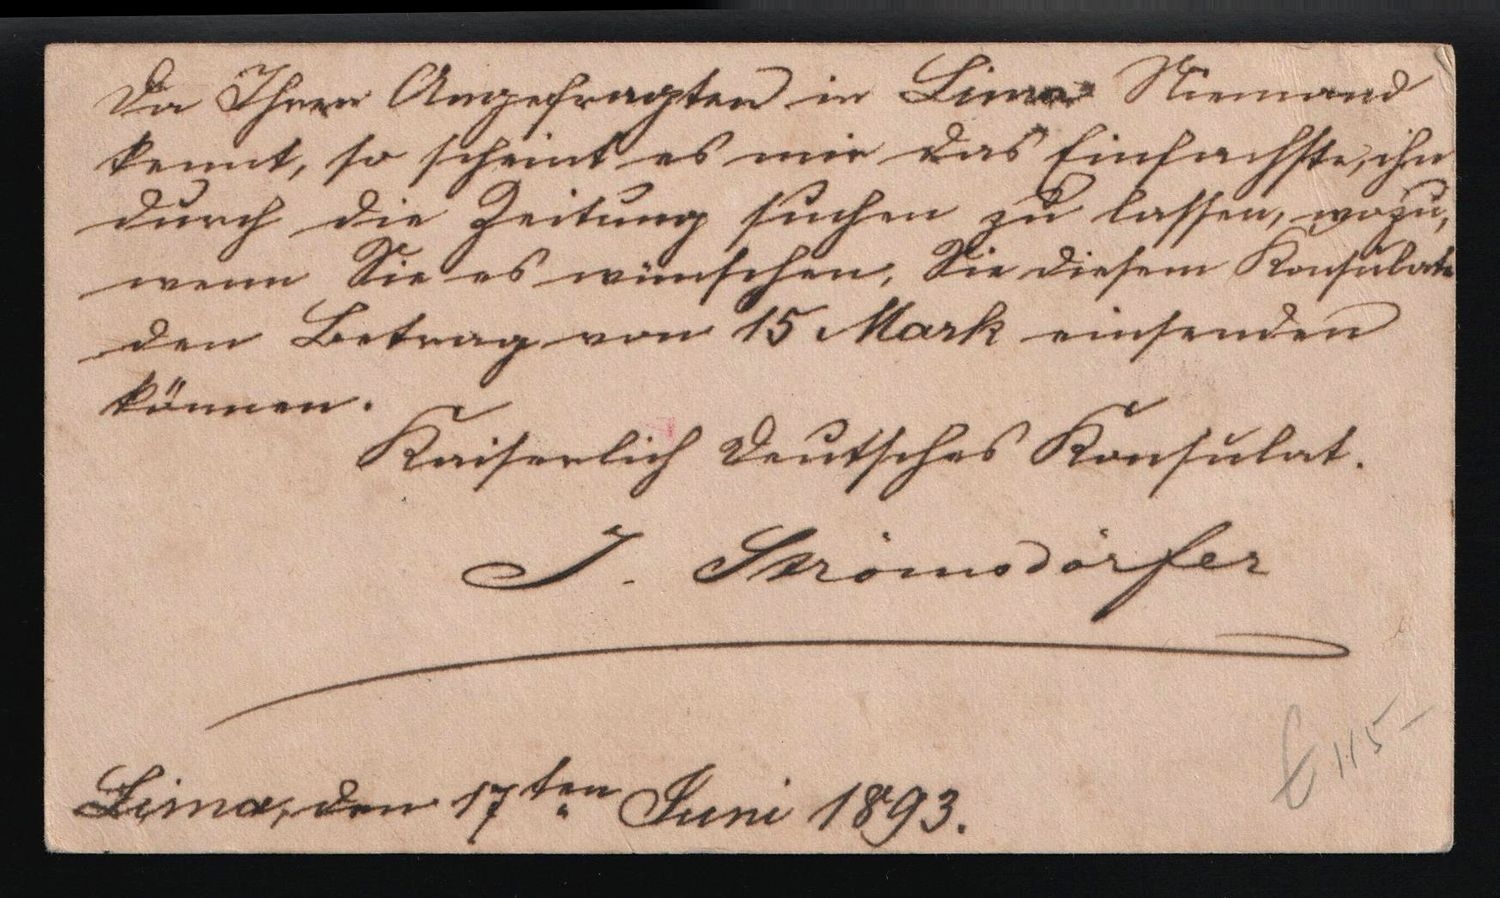 Da Ihren Angefragten in Lima Niemand
kennt, so scheint es mir das Einfachste, ihn
durch die Zeitung suchen zu lassen, wozu,
wenn Sie es wünschen, Sie diesem Konsulate
den Betrag von 15 Mark einsenden
können.
Kaiserlich Deutsches Konsulat.
J. Strömsdörfer
Lima, den 17ten Juni 1893.
£115-